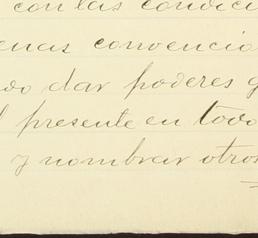 con las condici
enas convencio
do dar poderes g
l presente en todo
y nombrar otros